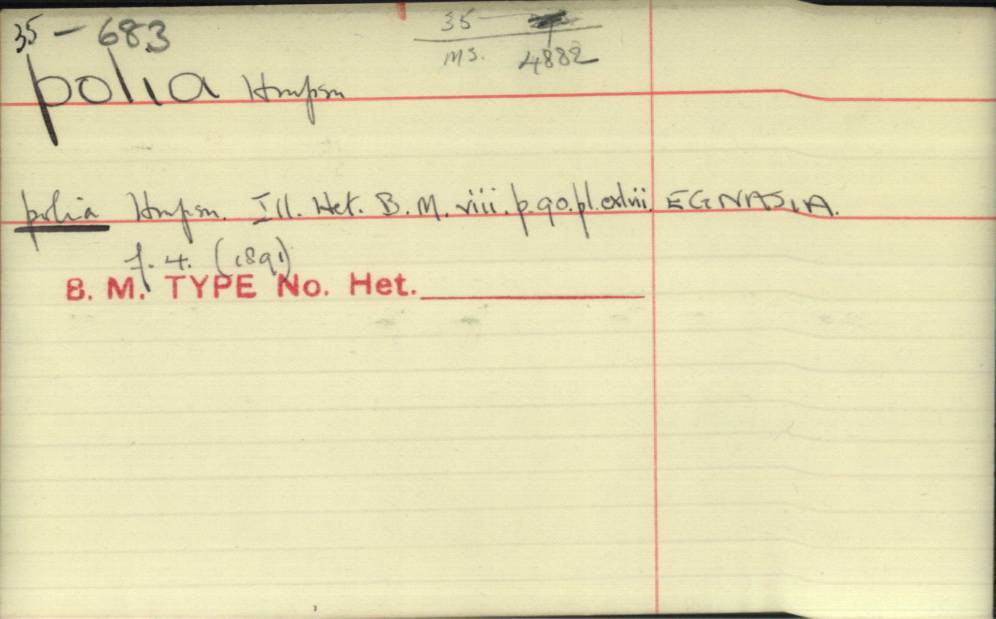 35 — 683
35
MS. 4882
polia Hmpsn
polia Hmpsn. Ill. Het. B.M. viii. p.90. pl. cxlvii. EGNASIA.
f. 4. (1891)
B. M. TYPE No. Het.